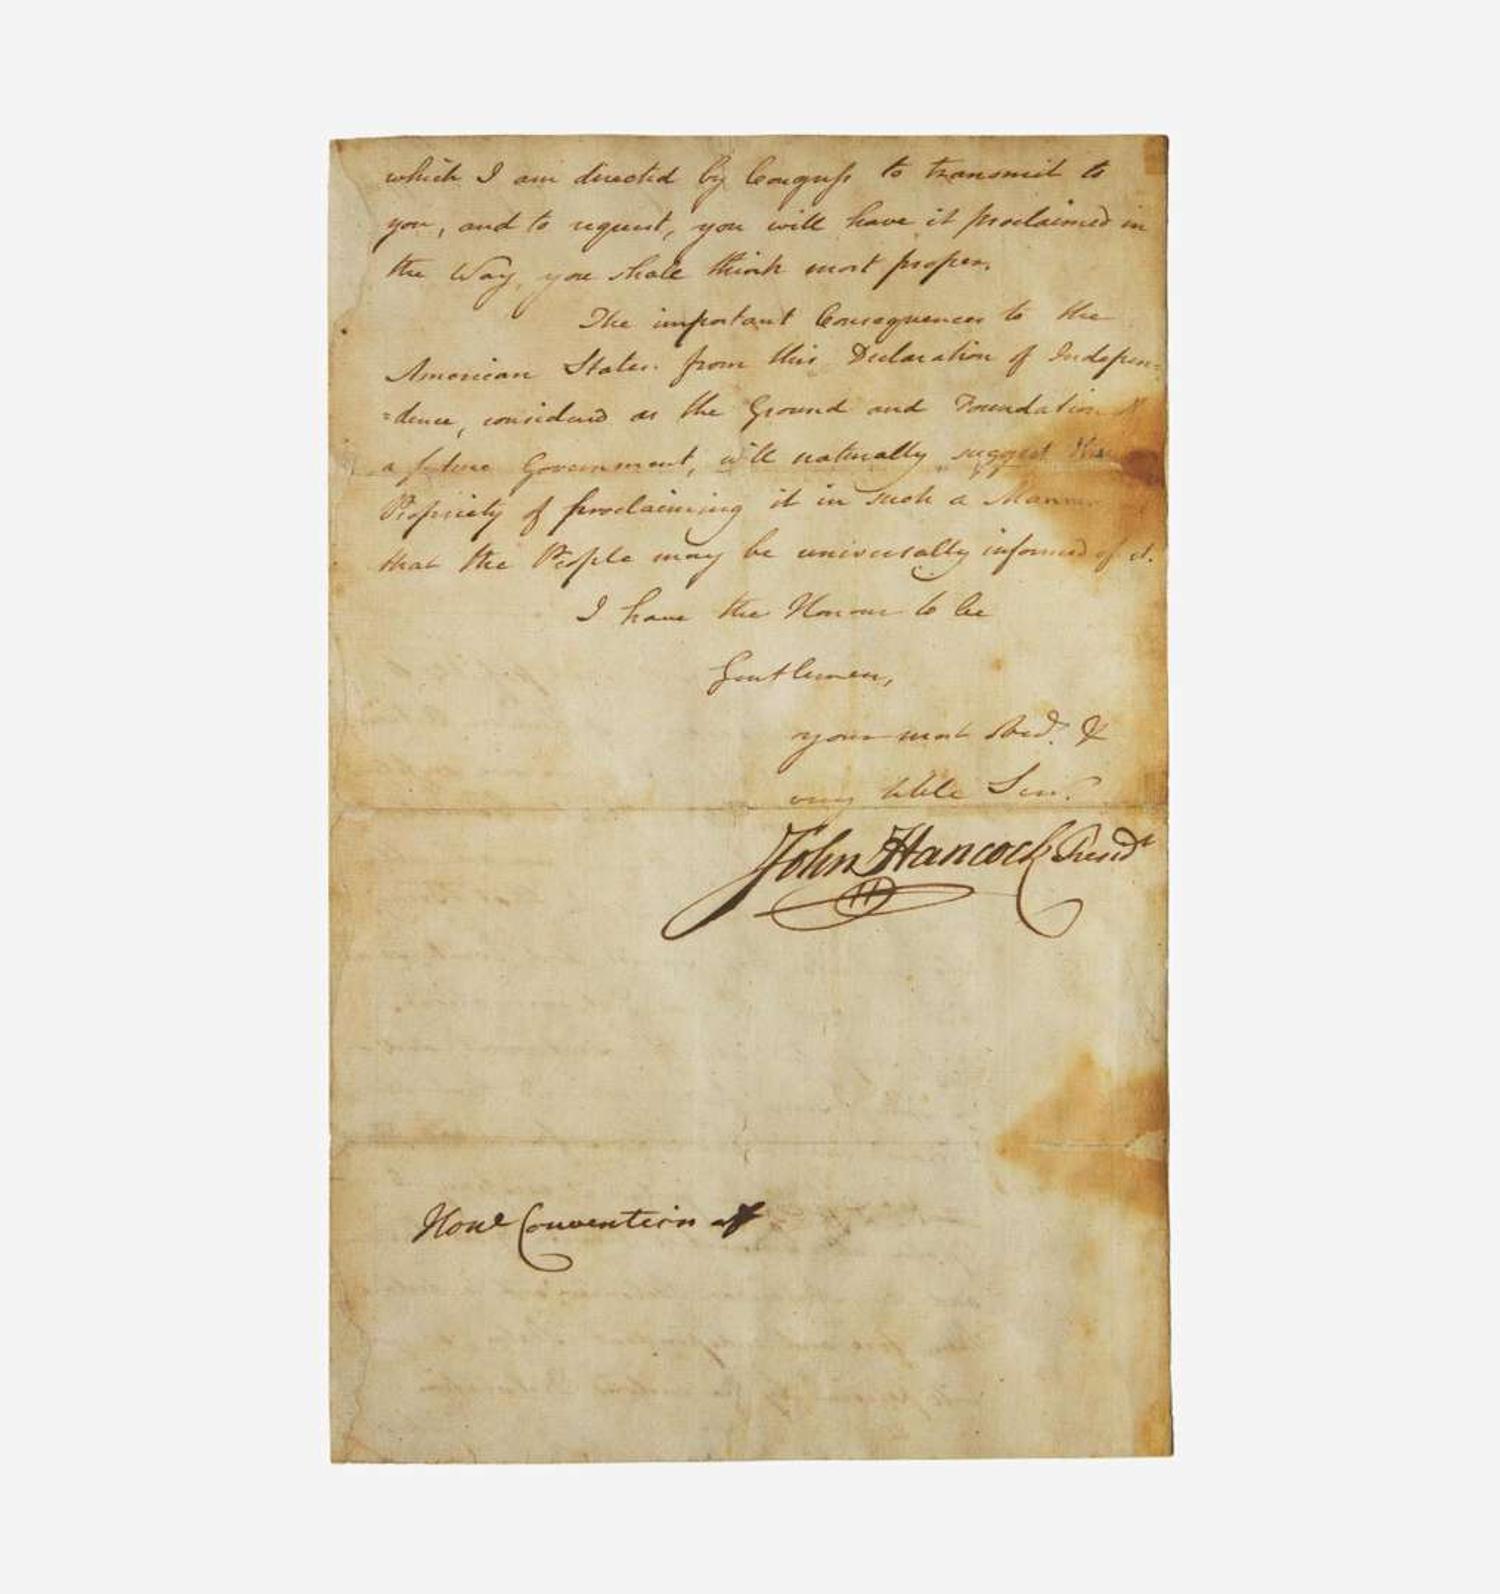 which I am directed by Congress to transmit to
you, and to request, you will have it proclaimed in
the Way, you shall think most proper.
The important Consequences to the
American States from this Declaration of Indepen=
=dence, considered as the Ground and Foundation of
a future Government, will naturally suggest the
Propriety of proclaiming it in such a Manner
that the People may be universally informed of it.
I have the Honour to be
Gentlemen,
your most Obed.t &
very hble Ser.t
John Hancock Presid.t
Hon.e Convention of